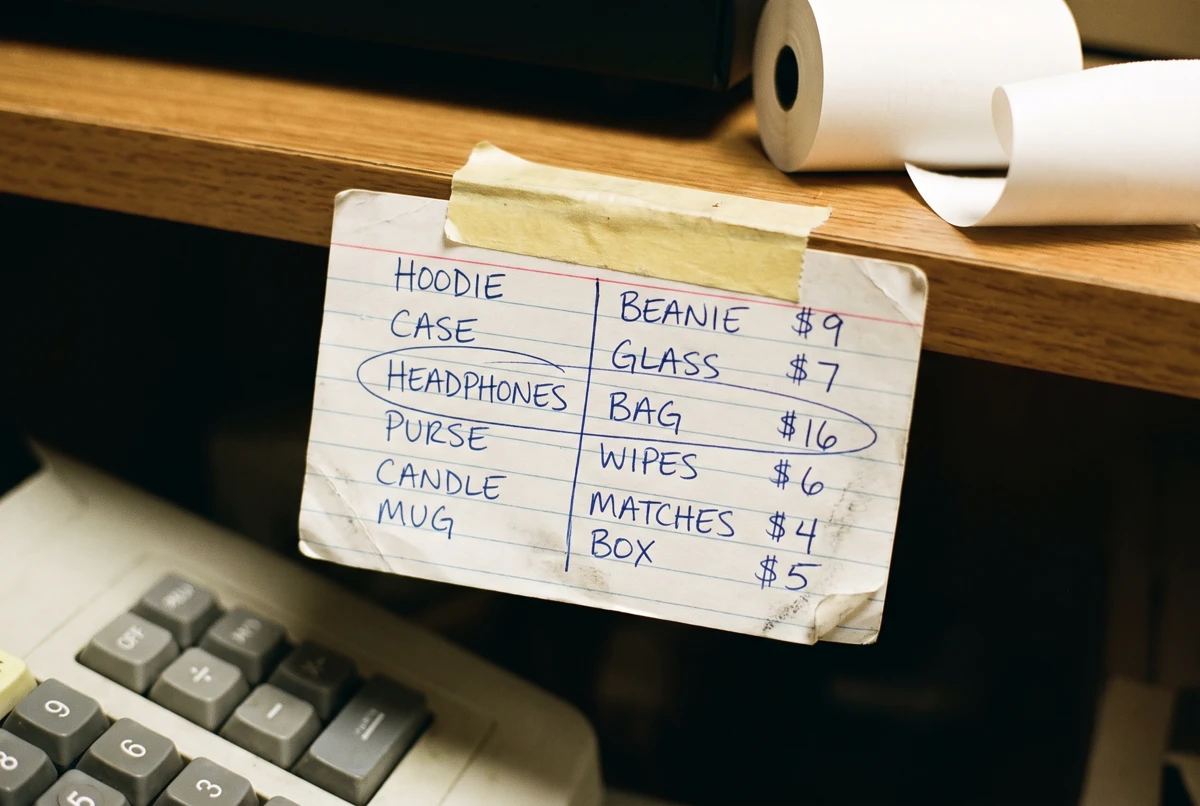 HOODIE BEANIE $9
CASE GLASS $7
HEADPHONES BAG $16
PURSE WIPES $6
CANDLE MATCHES $4
MUG BOX $5
OFF
÷
-
9
6
3
8
5